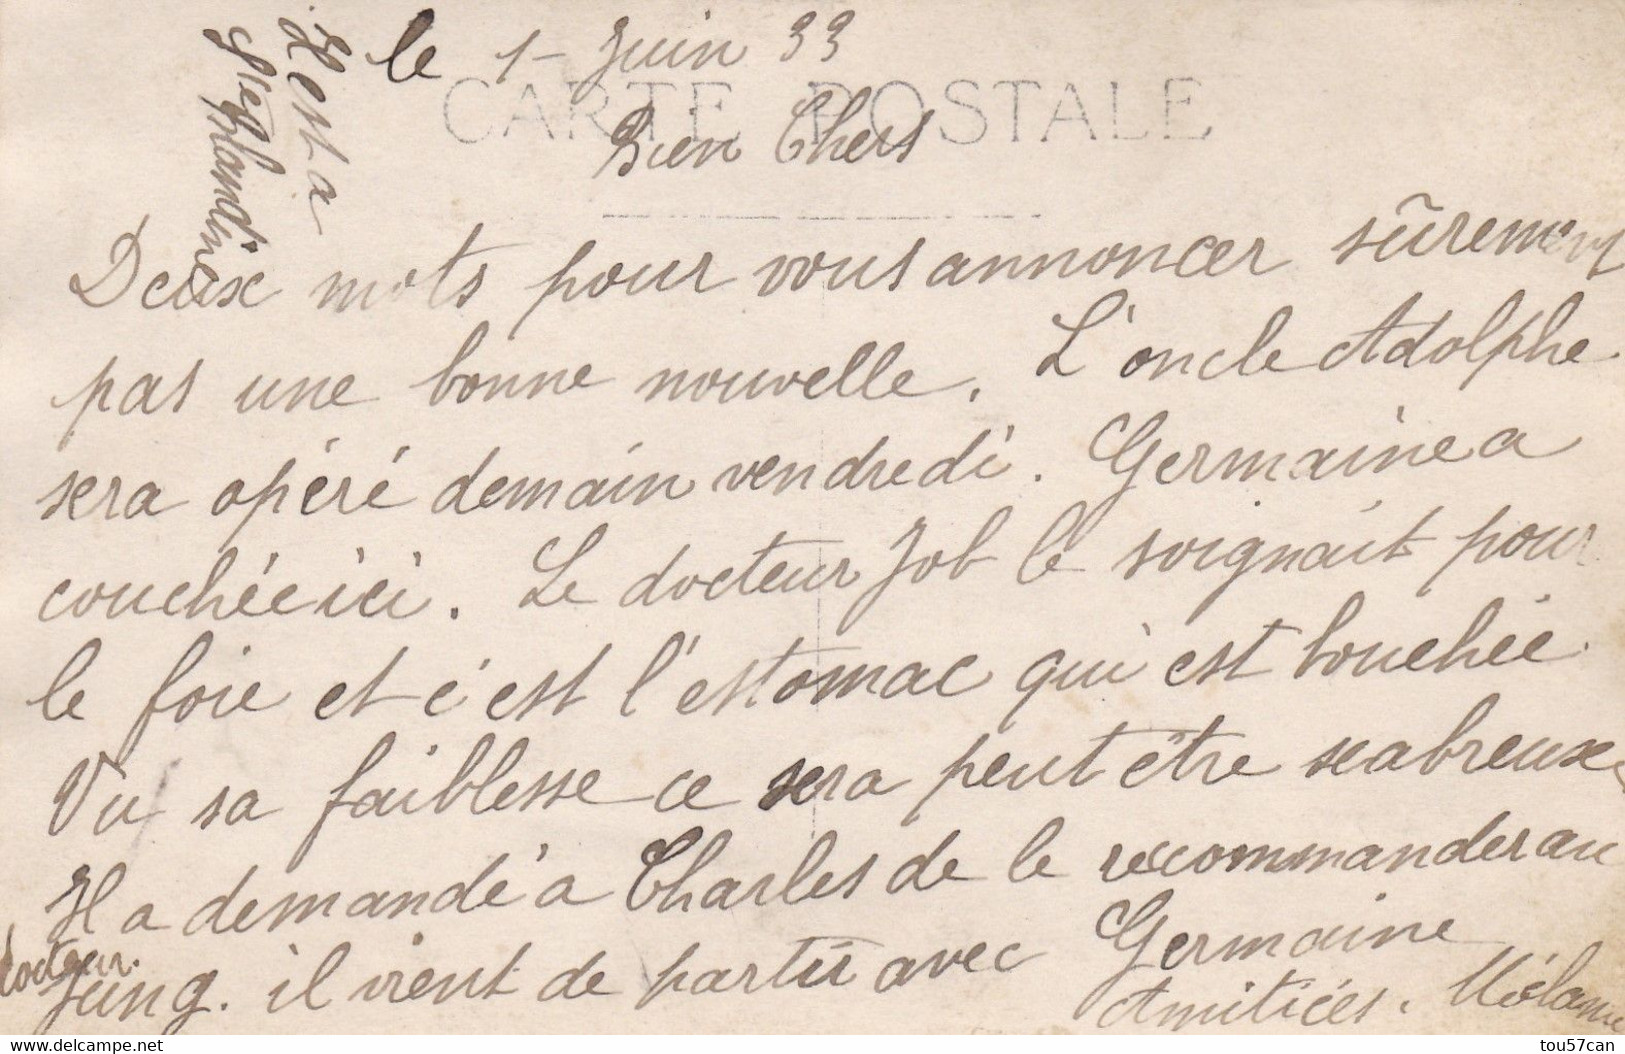 le 1 - Juin 33
CARTE POSTALE
Bien Chers
Il est a
Ste Blandine
Deux mots pour vous annoncer sûrement
pas une bonne nouvelle. L'oncle Adolphe
sera opéré demain vendredi. Germaine a
couchée ici. Le docteur Job le soignait pour
le foie et c'est l'estomac qui est bouchée.
Vu sa faiblesse ce sera peut être scabreux.
Il a demandé a Charles de le recommander au
docteur.
Jung. il vient de partir avec Germaine
Amitiées. Mélanie
tou57can
www.delcampe.net